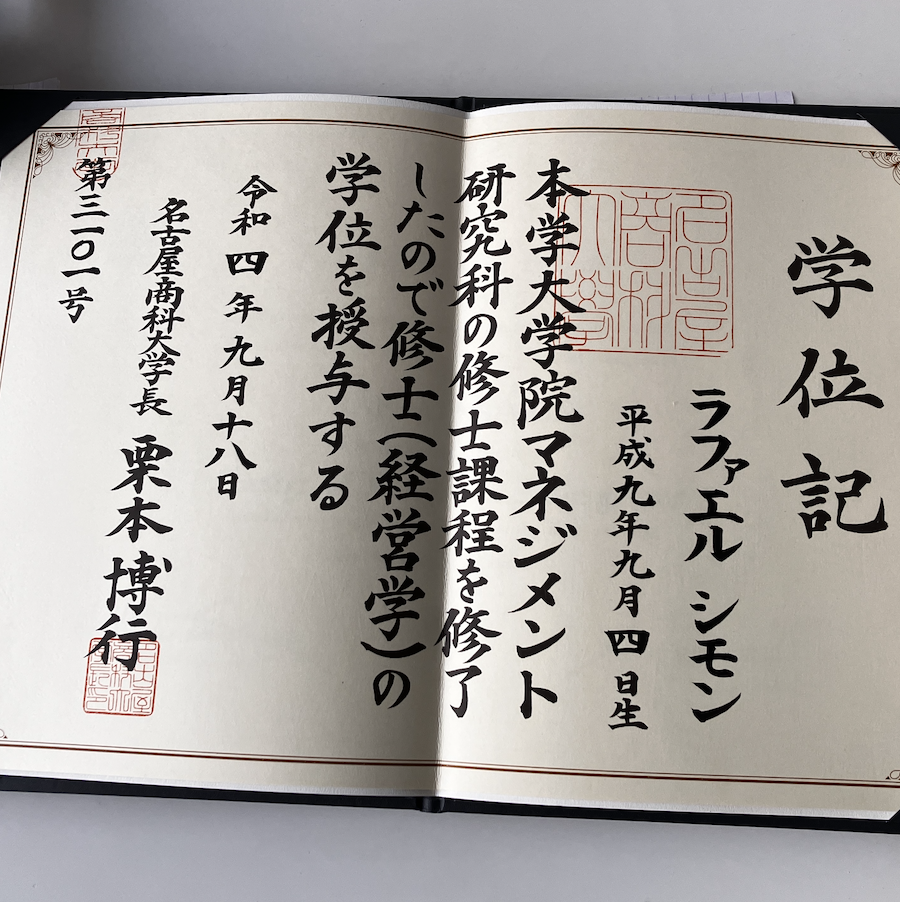 学位記
ラファエル シモン
平成九年九月四日生
本学大学院マネジメント
研究科の修士課程を修了
したので修士(経営学)の
学位を授与する
令和四年九月十八日
名古屋商科大学長 栗本博行
第三一〇一号
名古屋
商科
大学